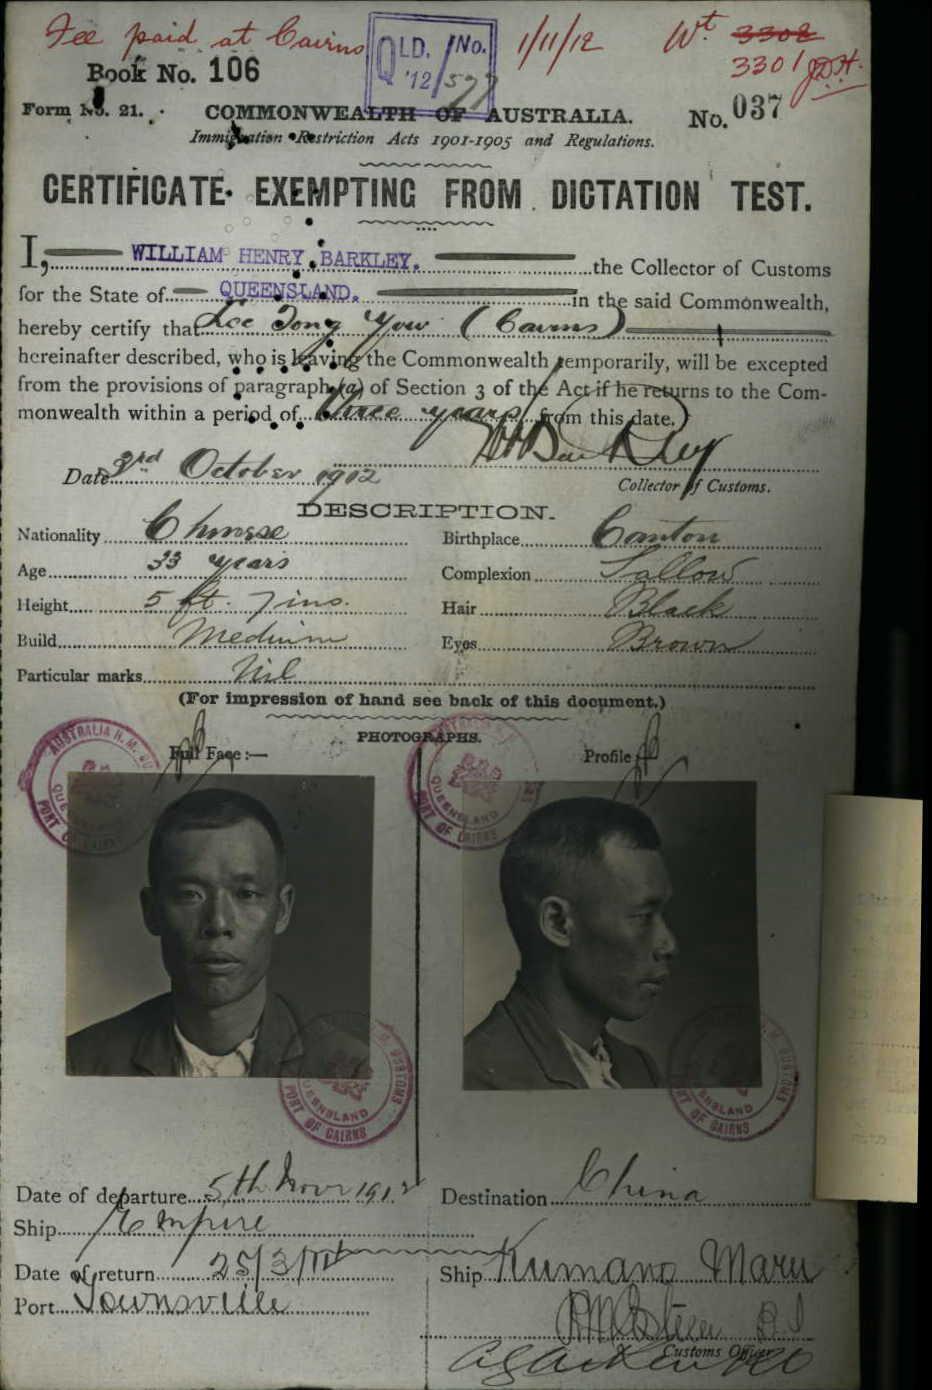 Fee paid at Cairns
QLD. No. '12/577
1/11/12
Wt 3302
3301 J.D.H.
Book No. 106
Form No. 21.
COMMONWEALTH OF AUSTRALIA.
No. 037
Immigration Restriction Acts 1901-1905 and Regulations.
CERTIFICATE EXEMPTING FROM DICTATION TEST.
I, WILLIAM HENRY BARKLEY. the Collector of Customs
for the State of QUEENSLAND. in the said Commonwealth,
hereby certify that Lee Tong Yow (Cairns)
hereinafter described, who is leaving the Commonwealth temporarily, will be excepted
from the provisions of paragraph (a) of Section 3 of the Act if he returns to the Com-
monwealth within a period of three years from this date.
W H Barkley
Date 3rd October 1912
Collector of Customs.
DESCRIPTION.
Nationality Chinese Birthplace Canton
Age 33 years Complexion Sallow
Height 5 ft. 7 ins. Hair Black
Build Medium Eyes Brown
Particular marks Nil
(For impression of hand see back of this document.)
PHOTOGRAPHS.
Full Face:— Profile:—
AUSTRALIA H.M. CUSTOMS QUEENSLAND PORT OF CAIRNS
QUEENSLAND PORT OF CAIRNS
CUSTOMS QUEENSLAND PORT OF CAIRNS
H.M. CUSTOMS QUEENSLAND PORT OF CAIRNS
Date of departure 5th Novr 1912 Destination China
Ship Empire
Date of return 25/3/14 Ship Kumano Maru
Port Townsville
Customs Officer